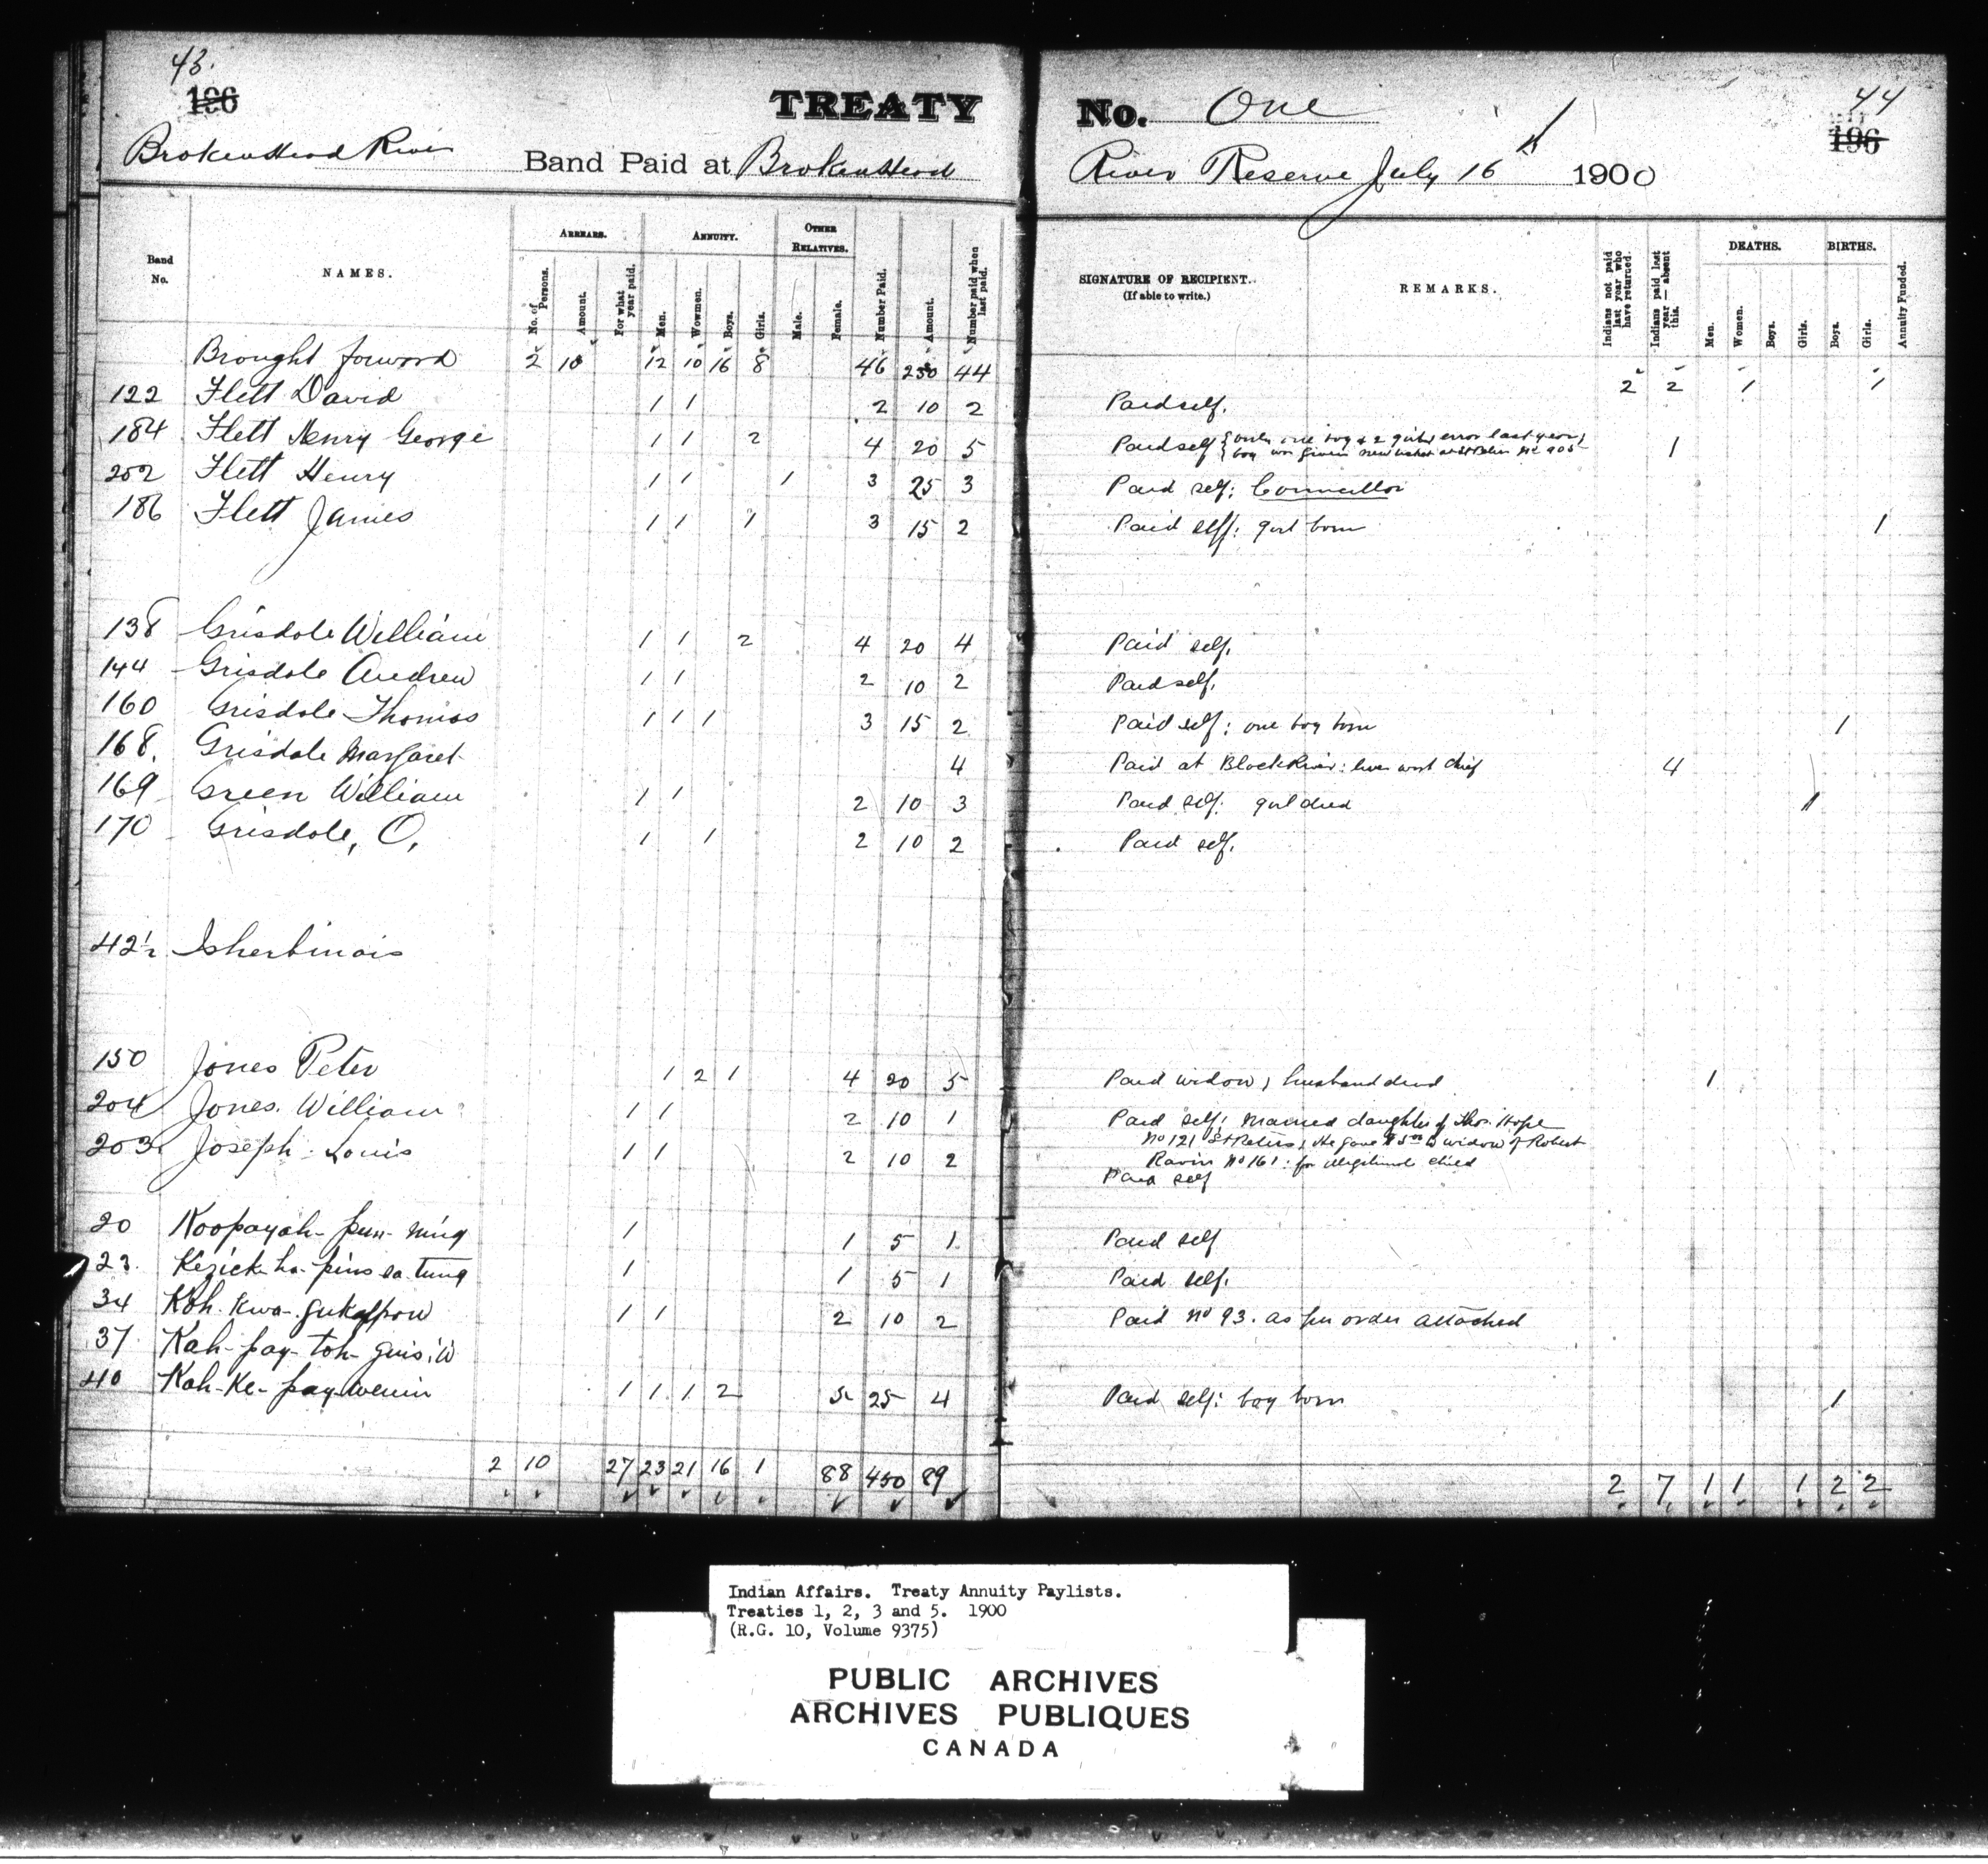 43.
196
TREATY No. One
44
196
BrokenHead River Band Paid at BrokenHead River Reserve July 16 1900
Band No.
NAMES.
ARREARS.
No. of Persons.
Amount.
For what year paid.
ANNUITY.
Men.
Wowmen.
Boys.
Girls.
OTHER RELATIVES.
Male.
Female.
Number Paid.
Amount.
Number paid when last paid.
SIGNATURE OF RECIPIENT.
(If able to write.)
REMARKS.
Indians not paid last year who have returned.
Indians paid last year — absent this.
DEATHS.
Men.
Women.
Boys.
Girls.
BIRTHS.
Boys.
Girls.
Annuity Funded.
Brought forword 2 10 12 10 16 8 46 230 44 2 2 1 1
122 Flett David 1 1 2 10 2 Paid self.
184 Flett Henry George 1 1 2 4 20 5 Paid self { only one boy & 2 girls, error last year, 1
{ boy was given new ticket at St Peters No 205
202 Flett Henry 1 1 1 3 25 3 Paid self: Councillor
186 Flett James 1 1 1 3 15 2 Paid self: girl born 1
138 Grisdole William 1 1 2 4 20 4 Paid self.
144 Grisdole Andrew 1 1 2 10 2 Paid self.
160 Grisdole Thomas 1 1 1 3 15 2 Paid self: one boy born 1
168. Grisdale Margaret 4 Paid at Black River: lives with Chief 4
169 Green William 1 1 2 10 3 Paid self: girl died 1
170 Grisdole, O, 1 1 2 10 2 Paid self.
42½ Isherbinois
150 Jones Peter 1 2 1 4 20 5 Paid widow, husband dead 1
204 Jones William 1 1 2 10 1 Paid self; Married daughter of Thos. Hope
No 121 St Peters, He gave $5.00 to widow of Robert
Ravin No 161: for illegitimate child
203 Joseph Louis 1 1 2 10 2 Paid self
20 Koopayah-pun-ning 1 1 5 1 Paid self
23. Kezick-ha-pins sa tung 1 1 5 1 Paid self.
34 Koh-Kwa-gukappow 1 1 2 10 2 Paid No 93. as per order attached
37 Kah-pay-toh-guis.'w
40 Kah-Ke-pay-wenin 1 1 1 2 5 25 4 Paid self: boy born 1
2 10 27 23 21 16 1 88 450 89 2 7 1 1 1 2 2
Indian Affairs. Treaty Annuity Paylists.
Treaties 1, 2, 3 and 5. 1900
(R.G. 10, Volume 9375)
PUBLIC ARCHIVES
ARCHIVES PUBLIQUES
CANADA